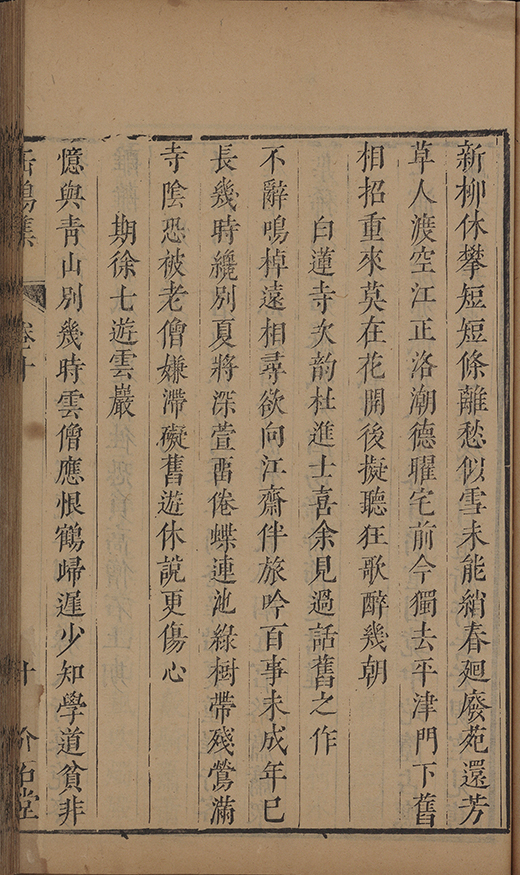 新柳休攀短短條離愁似雪未能綃春廻廢苑還芳
草人渡空江正洛潮德曜宅前今獨去平津門下舊
相招重來莫在花開後擬聽狂歌醉幾朝
白蓮寺次韵杜進士喜余見過話舊之作
不辭鳴棹遠相尋欲向江齋伴旅吟百事未成年已
長幾時纔別夏將深萱畱倦蝶連池綠樹帶殘鶯滿
寺陰恐被老僧嫌滯礙舊遊休說更傷心
期徐七遊雲巖
憶與青山別幾時雲僧應恨鶴歸遲少知學道貧非
缶鳴集
卷十
十
竹素堂